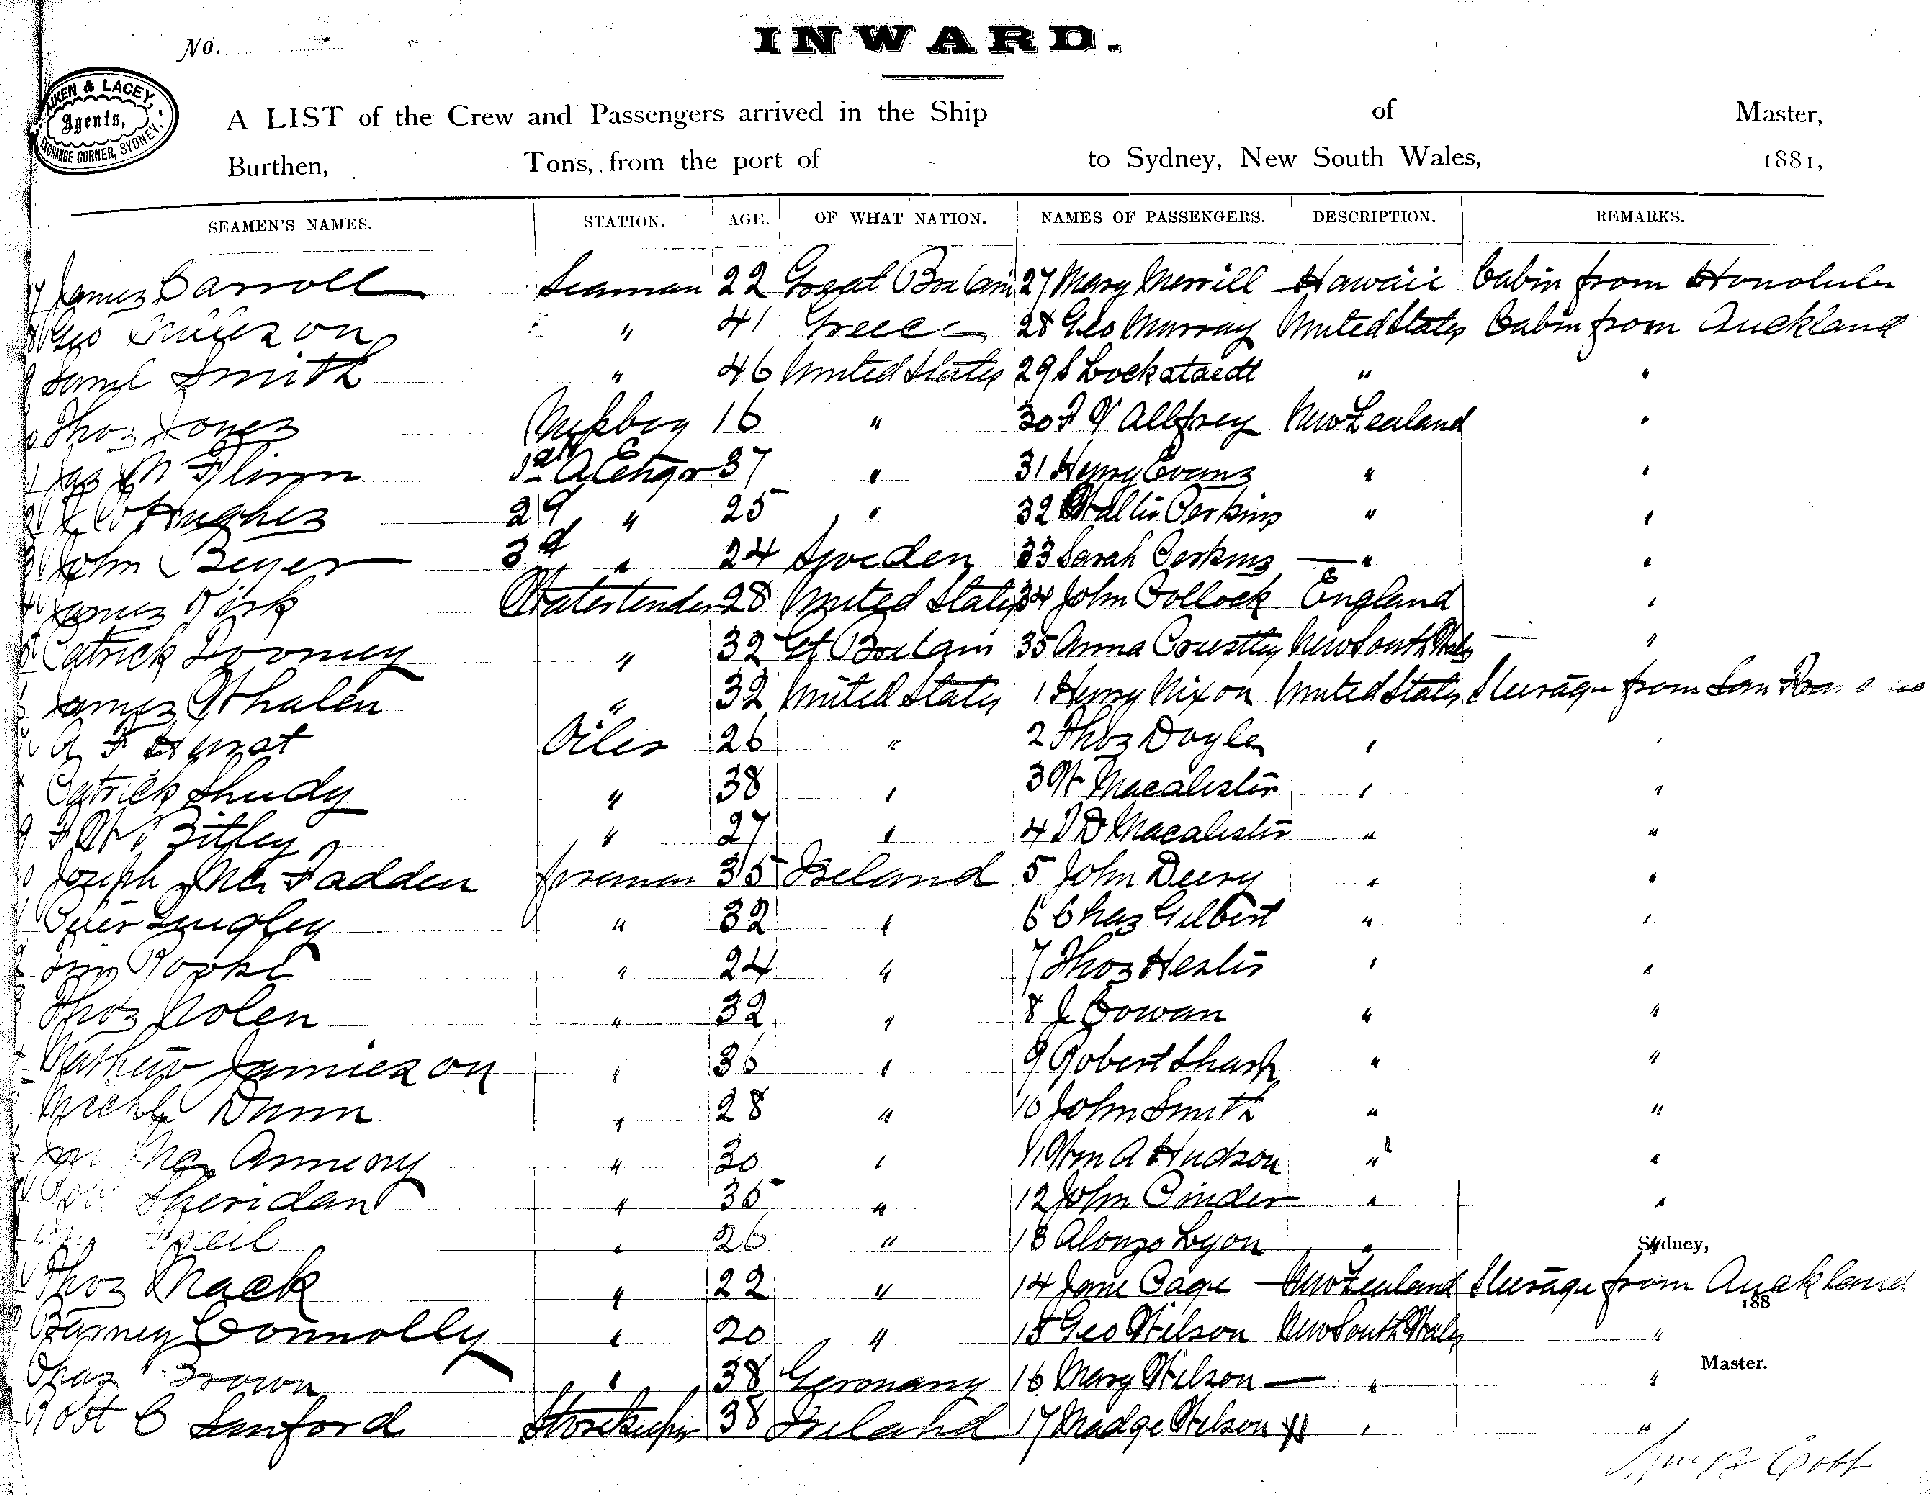 No.
INWARD.
AIKEN & LACEY, Agents, EXCHANGE CORNER, SYDNEY.
A LIST of the Crew and Passengers arrived in the Ship of Master,
Burthen, Tons, from the port of to Sydney, New South Wales, 1881,
SEAMEN'S NAMES. STATION. AGE. OF WHAT NATION. NAMES OF PASSENGERS. DESCRIPTION. REMARKS.
James Carroll Seaman 22 Great Britain 27 Mary Merrill Hawaii Cabin from Honolulu
Geo 〃 41 Greece 28 Geo Murray United States Cabin from Auckland
Saml Smith 〃 46 United States 29 S Lockstaedt 〃 〃
Thos Jones Messboy 16 〃 30 Allfrey New Zealand 〃
Jas Flinn 1st A Engr 37 〃 31 Henry Evans 〃 〃
Hughes 2d 〃 25 〃 32 Walter Perkins 〃 〃
John Beyer 3d 〃 24 Sweden 33 Sarah Perkins — 〃 〃
James Kirk Watertender 28 United States 34 John Pollock England 〃
Patrick Toomey 〃 32 Gt Britain 35 Anna Priestley New South Wales 〃
James Whalen 〃 32 United States 1 Henry Nixon United States Steerage from San
A F Hurst Oiler 26 〃 2 Thos Doyle 〃 〃
Patrick Shudy 〃 38 〃 3 W Macalister 〃 〃
F W Bitley 〃 27 〃 4 D Macalister 〃 〃
Joseph Mc Fadden fireman 35 Ireland 5 John Deery 〃 〃
Peter Quigley 〃 32 〃 6 Chas Gilbert 〃 〃
Rooke 〃 24 〃 7 Thos Hesler 〃 〃
Thos Nolen 〃 32 〃 8 J Cowan 〃 〃
Mathew Jamieson 〃 36 〃 9 Robert Sharp 〃 〃
Michl Dunn 〃 28 〃 10 John Smith 〃 〃
Mc Anneny 〃 30 〃 11 Wm A Hudson 〃 〃
Sheridan 〃 35 〃 12 John Pinder 〃 〃
Neil 〃 26 〃 13 Alonzo Lyon 〃 〃
Sydney,
Thos Mack 〃 22 〃 14 Jane Page — New Zealand Steerage from Auckland
188
Barney Connolly 〃 20 〃 15 Geo Wilson New South Wales 〃
Chas Brown 〃 38 Germany 16 Mary Wilson — 〃 〃
Master.
Robt C Sanford Storekeeper 38 Ireland 17 Madge Wilson 〃 〃
Cobb